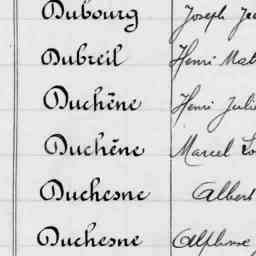 Dubourg Joseph
Dubreil Henri
Duchêne Henri
Duchêne Marcel
Duchesne Albert
Duchesne Alphonse